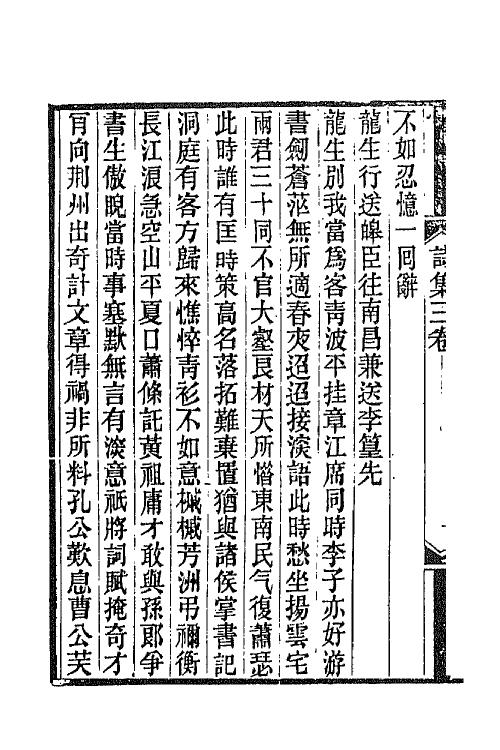 詩集三卷
不如忍憶一囘辭
龍生行送皞臣往南昌兼送李篁先
龍生別我當爲客靑波平挂章江席同時李子亦好游
書劒蒼茫無所適春夜迢迢接淡語此時愁坐揚雲宅
兩君三十同不官大壑艮材天所慳東南民气復蕭瑟
此時誰有匡時策高名落拓難棄置猶與諸侯掌書記
洞庭有客方歸來憔悴靑衫不如意槭槭芳洲弔禰衡
長江浪急空山平夏口蕭條託黃祖庸才敢與孫郎爭
書生傲睨當時事塞默無言有淡意祇將詞賦掩奇才
肎向荆州出奇計文章得禍非所料孔公歎息曹公笑